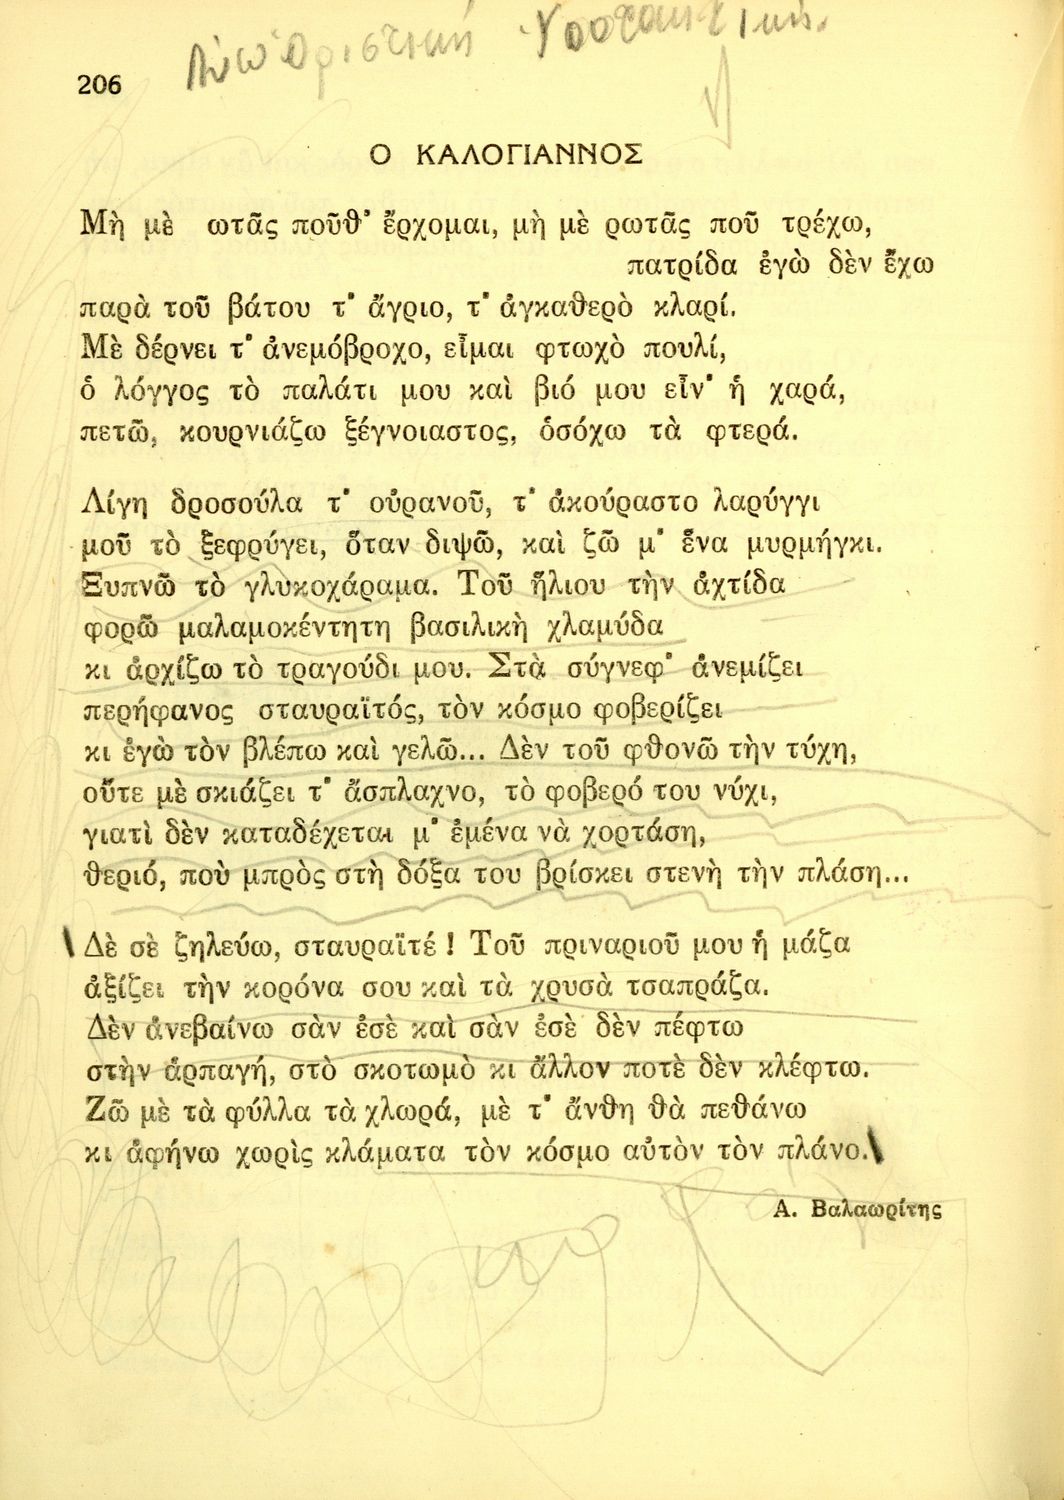 206
Ὁριστική Ὑποτακτική.
Ο ΚΑΛΟΓΙΑΝΝΟΣ
Μὴ μὲ ωτᾶς ποῦθ' ἔρχομαι, μὴ μὲ ρωτᾶς ποῦ τρέχω,
πατρίδα ἐγὼ δὲν ἔχω
παρὰ τοῦ βάτου τ' ἄγριο, τ' ἀγκαθερὸ κλαρί.
Μὲ δέρνει τ' ἀνεμόβροχο, εἶμαι φτωχὸ πουλί,
ὁ λόγγος τὸ παλάτι μου καὶ βιό μου εἶν' ἡ χαρά,
πετῶ, κουρνιάζω ξέγνοιαστος, ὁσόχω τὰ φτερά.
Λίγη δροσούλα τ' οὐρανοῦ, τ' ἀκούραστο λαρύγγι
μοῦ τὸ ξεφρύγει, ὅταν διψῶ, καὶ ζῶ μ' ἕνα μυρμήγκι.
Ξυπνῶ τὸ γλυκοχάραμα. Τοῦ ἥλιου τὴν ἀχτίδα
φορῶ μαλαμοκέντητη βασιλικὴ χλαμύδα
κι ἀρχίζω τὸ τραγούδι μου. Στὰ σύγνεφ' ἀνεμίζει
περήφανος σταυραϊτός, τὸν κόσμο φοβερίζει
κι ἐγὼ τὸν βλέπω καὶ γελῶ... Δὲν τοῦ φθονῶ τὴν τύχη,
οὔτε μὲ σκιάζει τ' ἄσπλαχνο, τὸ φοβερό του νύχι,
γιατὶ δὲν καταδέχεται μ' ἐμένα νὰ χορτάση,
θεριό, ποὺ μπρὸς στὴ δόξα του βρίσκει στενὴ τὴν πλάση...
Δὲ σὲ ζηλεύω, σταυραϊτέ! Τοῦ πριναριοῦ μου ἡ μάζα
ἀξίζει τὴν κορόνα σου καὶ τὰ χρυσὰ τσαπράζα.
Δὲν ἀνεβαίνω σὰν ἐσὲ καὶ σὰν ἐσὲ δὲν πέφτω
στὴν ἁρπαγή, στὸ σκοτωμὸ κι ἄλλον ποτὲ δὲν κλέφτω.
Ζῶ μὲ τὰ φύλλα τὰ χλωρά, μὲ τ' ἄνθη θὰ πεθάνω
κι ἀφήνω χωρὶς κλάματα τὸν κόσμο αὐτὸν τὸν πλάνο.
Α. Βαλαωρίτης